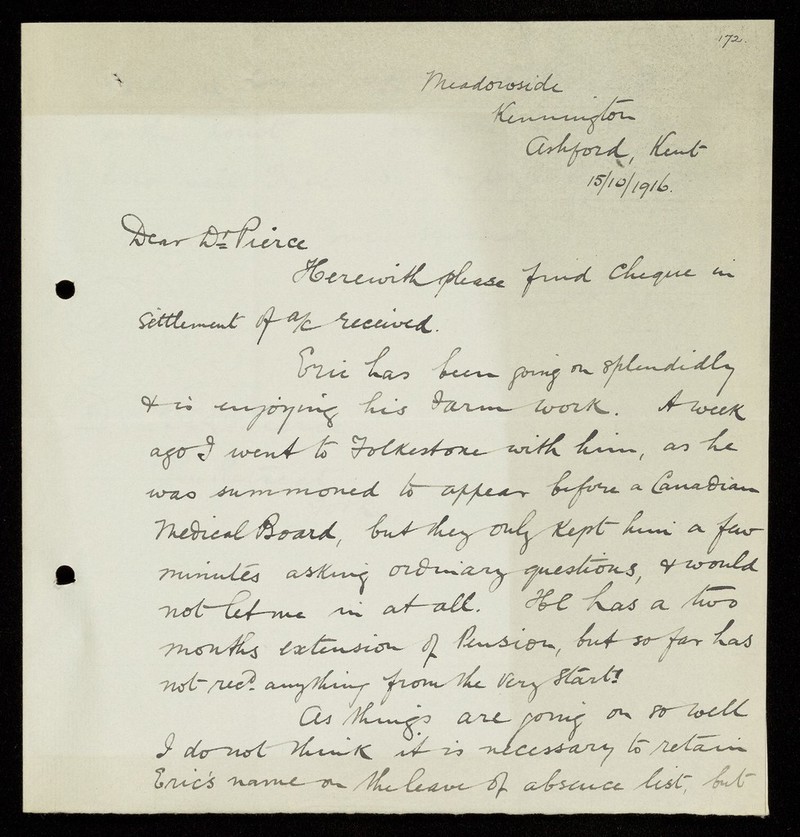 172.
Meadowside
Kennington
Ashford, Kent
15/10/1916.
Dear Dr Pierce
Herewith please find Cheque in
settlement of a/c received.
Eric has been going on splendidly
& is enjoying his farm work. A week
ago I went to Folkestone with him, as he
was summoned to appear before a Canadian
Medical Board, but they only kept him a few
minutes asking ordinary questions, & would
not let me in at all. He has a two
months extension of Pension, but so far has
not recd. anything from the very start!
As things are going on so well
I do not think it is necessary to retain
Eric's name on the leave of absence list, but